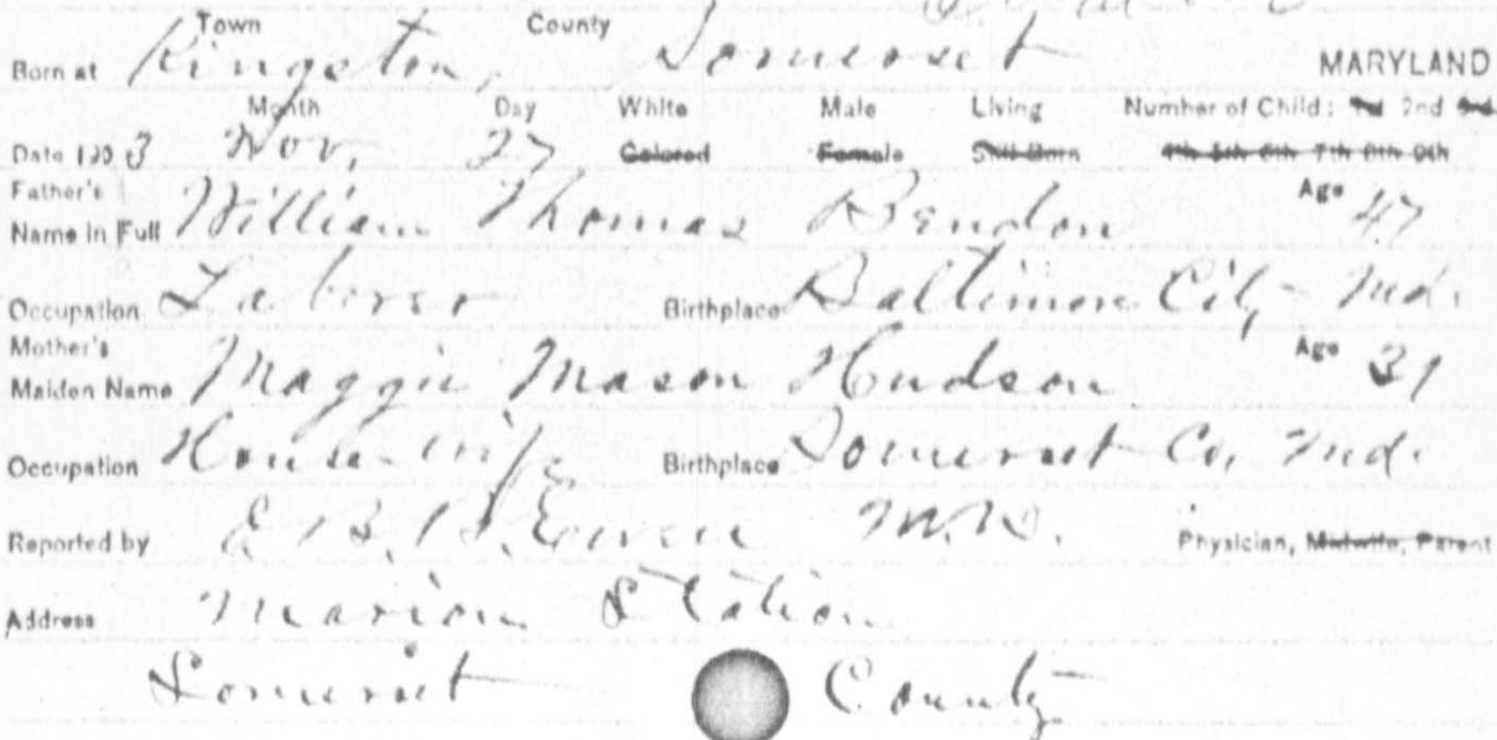 Town County
Born at Kingston, Somerset MARYLAND
Month Day White Male Living Number of Child: 1st 2nd 3rd
Date 1903 Nov. 27 Colored Female Still Born 4th 5th 6th 7th 8th 9th
Father's
Name in Full William Thomas Bendon Age 47
Occupation Laborer Birthplace Baltimore City Md.
Mother's
Maiden Name Maggie Mason Hudson Age 31
Occupation House-wife Birthplace Somerset Co. Md.
Reported by E B. M.D. Physician, Midwife, Parent
Address Marion Station
Somerset County